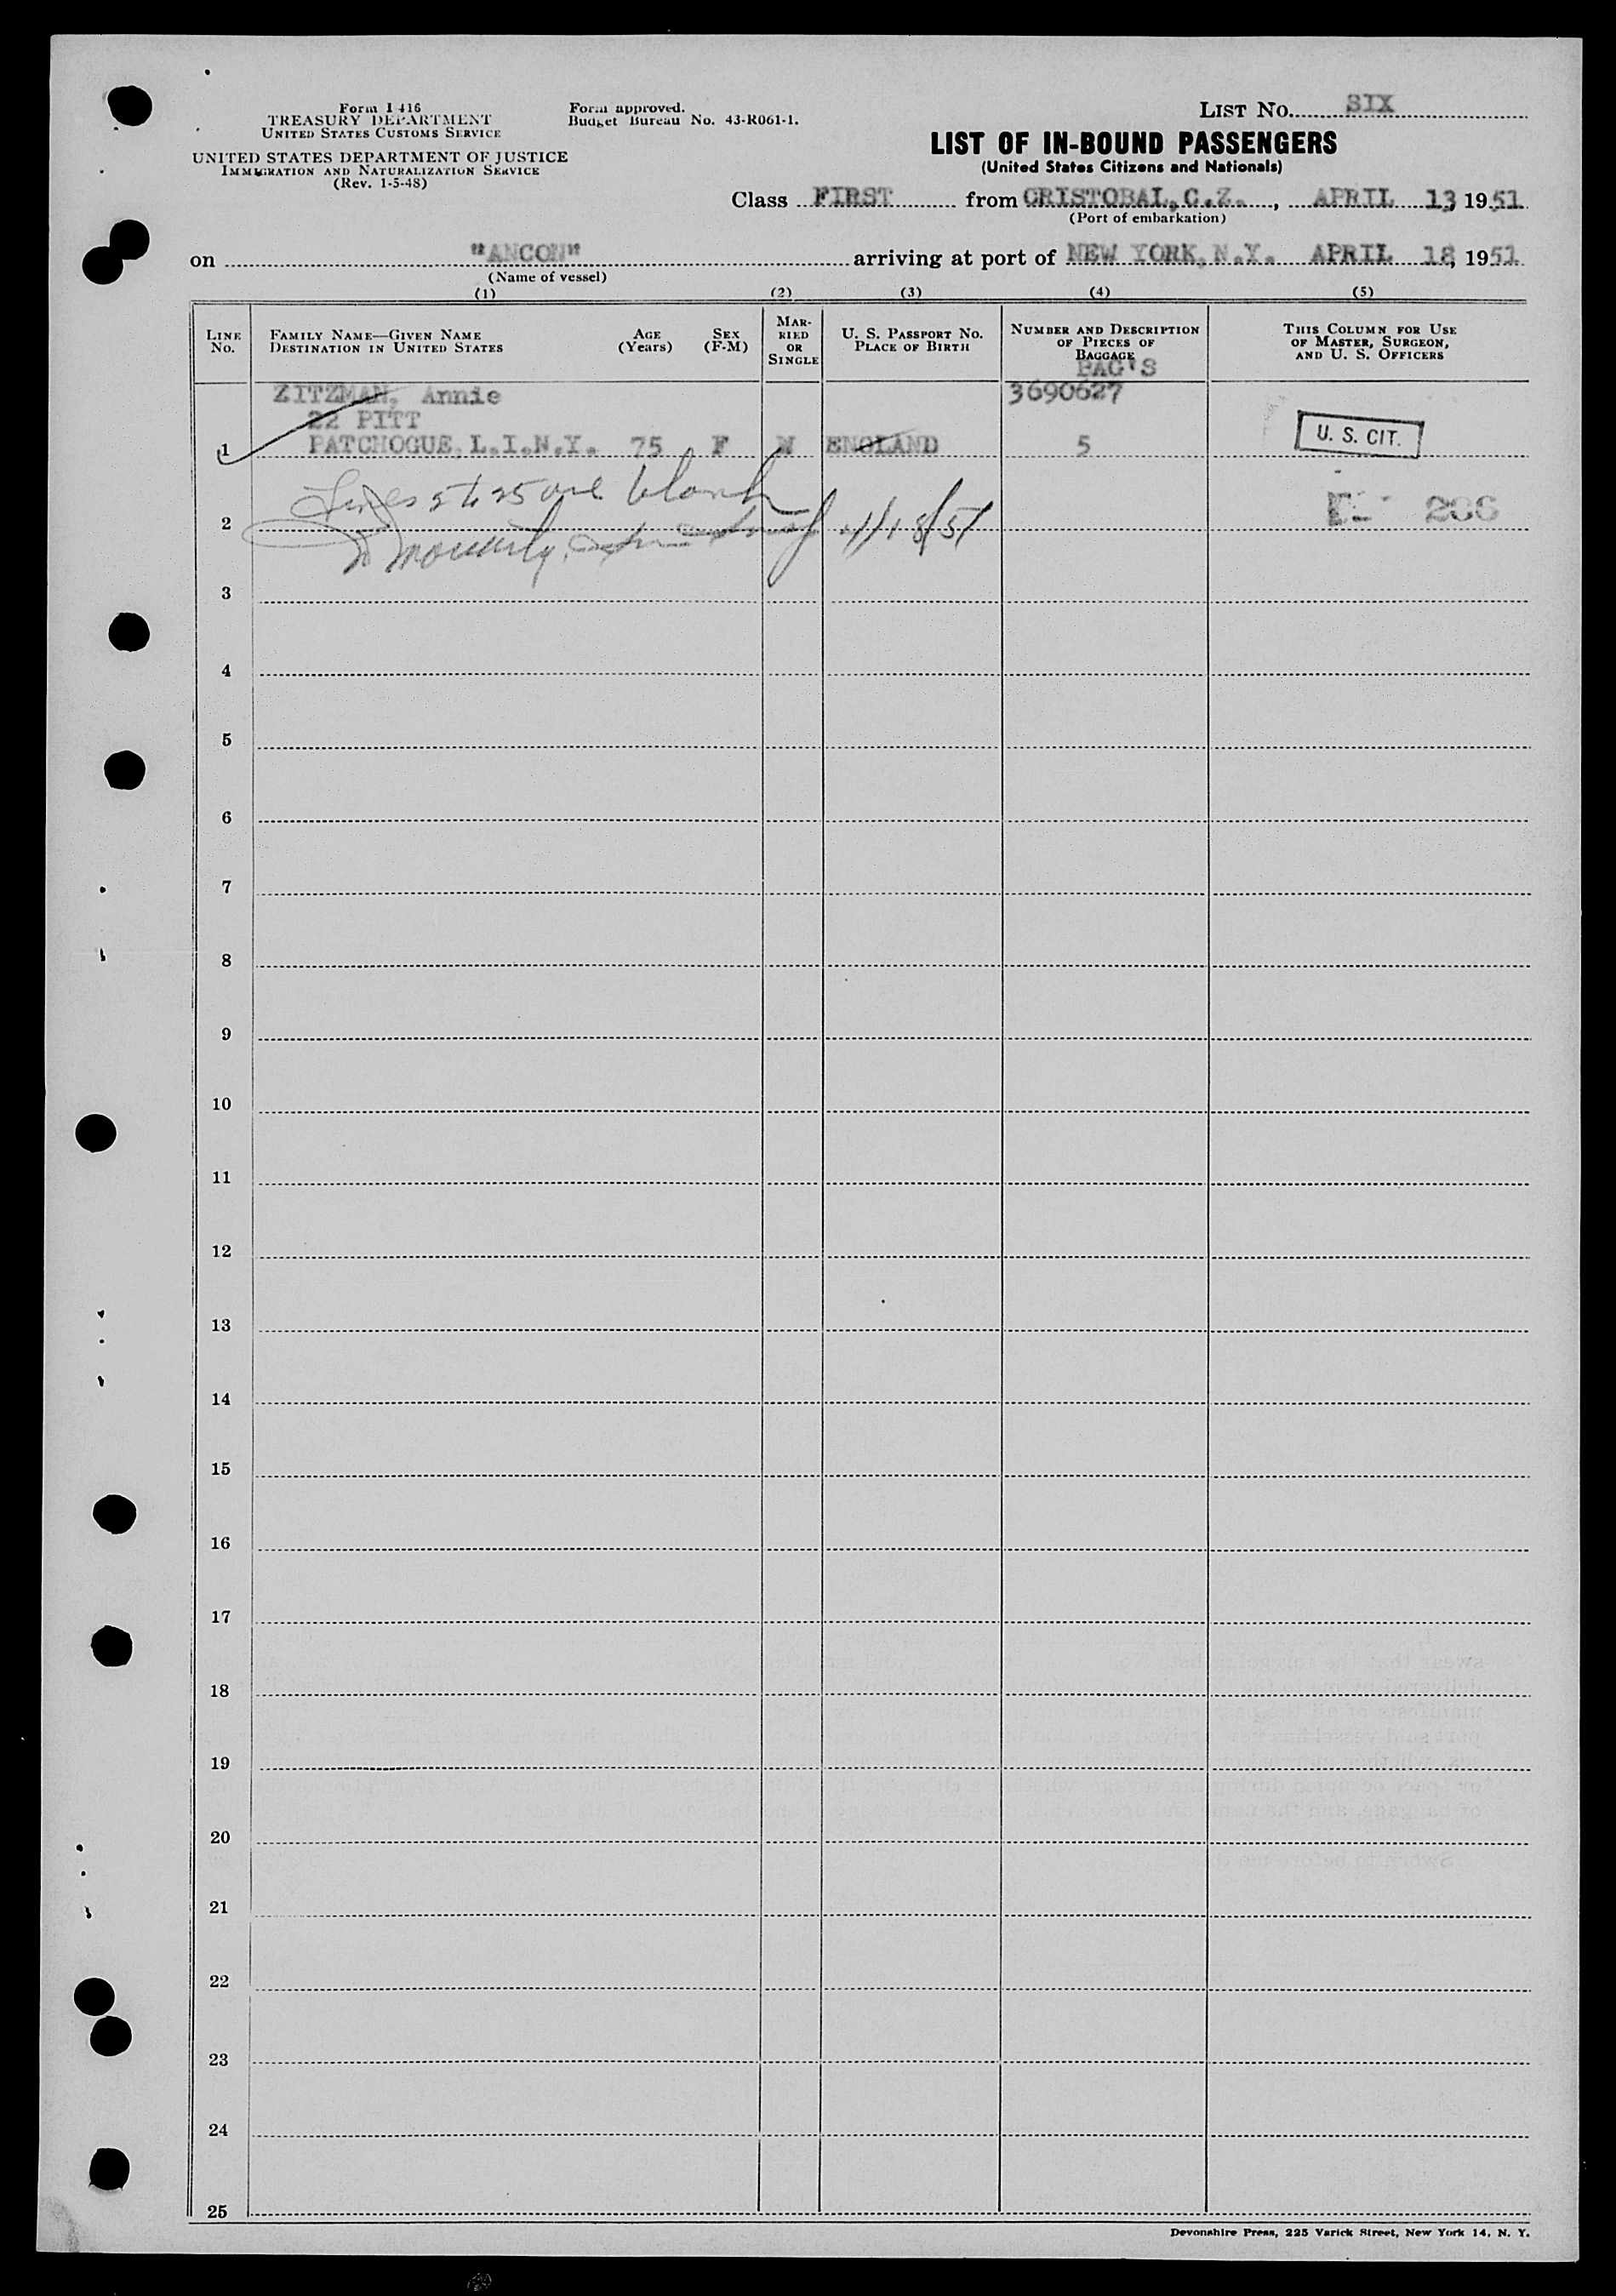 Form I 416
TREASURY DEPARTMENT
UNITED STATES CUSTOMS SERVICE
UNITED STATES DEPARTMENT OF JUSTICE
IMMIGRATION AND NATURALIZATION SERVICE
(Rev. 1-5-48)
Form approved.
Budget Bureau No. 43-R061-1.
LIST No. SIX
LIST OF IN-BOUND PASSENGERS
(United States Citizens and Nationals)
Class FIRST from CRISTOBAL, C.Z., APRIL 13, 1951
(Port of embarkation)
on "ANCON" arriving at port of NEW YORK, N.Y. APRIL 18, 1951
(Name of vessel)
(1) (2) (3) (4) (5)
LINE No.
FAMILY NAME—GIVEN NAME
DESTINATION IN UNITED STATES
AGE (Years)
SEX (F-M)
MAR-RIED OR SINGLE
U. S. PASSPORT No.
PLACE OF BIRTH
NUMBER AND DESCRIPTION OF PIECES OF BAGGAGE
BAG'S
THIS COLUMN FOR USE OF MASTER, SURGEON, AND U. S. OFFICERS
ZITZMAN, Annie 3690627
22 PITT
1 PATCHOGUE, L.I.N.Y. 75 F ENGLAND 5 U. S. CIT.
Lines 2 to 25 are blank
2 206
4/18/51
3
4
5
6
7
8
9
10
11
12
13
14
15
16
17
18
19
20
21
22
23
24
25
Devonshire Press, 225 Varick Street, New York 14, N. Y.